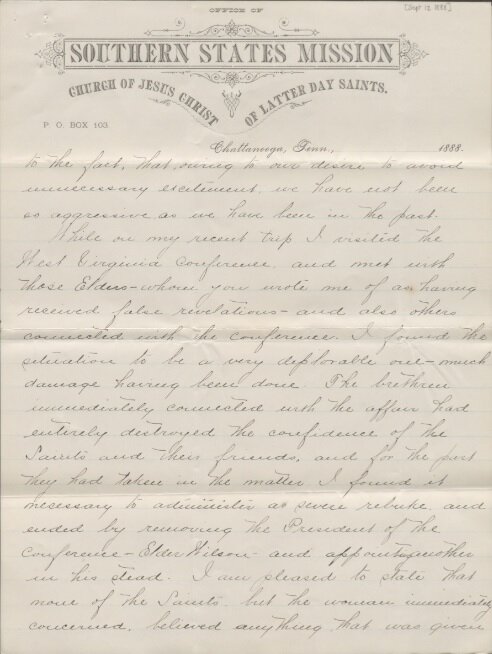 [Sept 12, 1888]
OFFICE OF
SOUTHERN STATES MISSION
CHURCH OF JESUS CHRIST
OF LATTER DAY SAINTS.
P. O. BOX 103
Chattanooga, Tenn., 1888.
to the fact, that, owing to our desire to avoid
unnecessary excitement, we have not been
so aggressive as we have been in the past.
While on my recent trip I visited the
West Virginia Conference, and met with
those Elders–whom you wrote me of as having
received false revelations–and also others
connected with the conference. I found the
situation to be a very deplorable one–much
damage having been done. The brethren
immediately connected with the affair had
entirely destroyed the confidence of the
Saints and their friends, and for the part
they had taken in the matter, I found it
necessary to administer as severe rebuke, and
ended by removing the President of the
Conference–Elder Wilson–and appointing another
in his stead. I am pleased to state that
none of the Saints, but the woman immediately
concerned, believed anything that was given